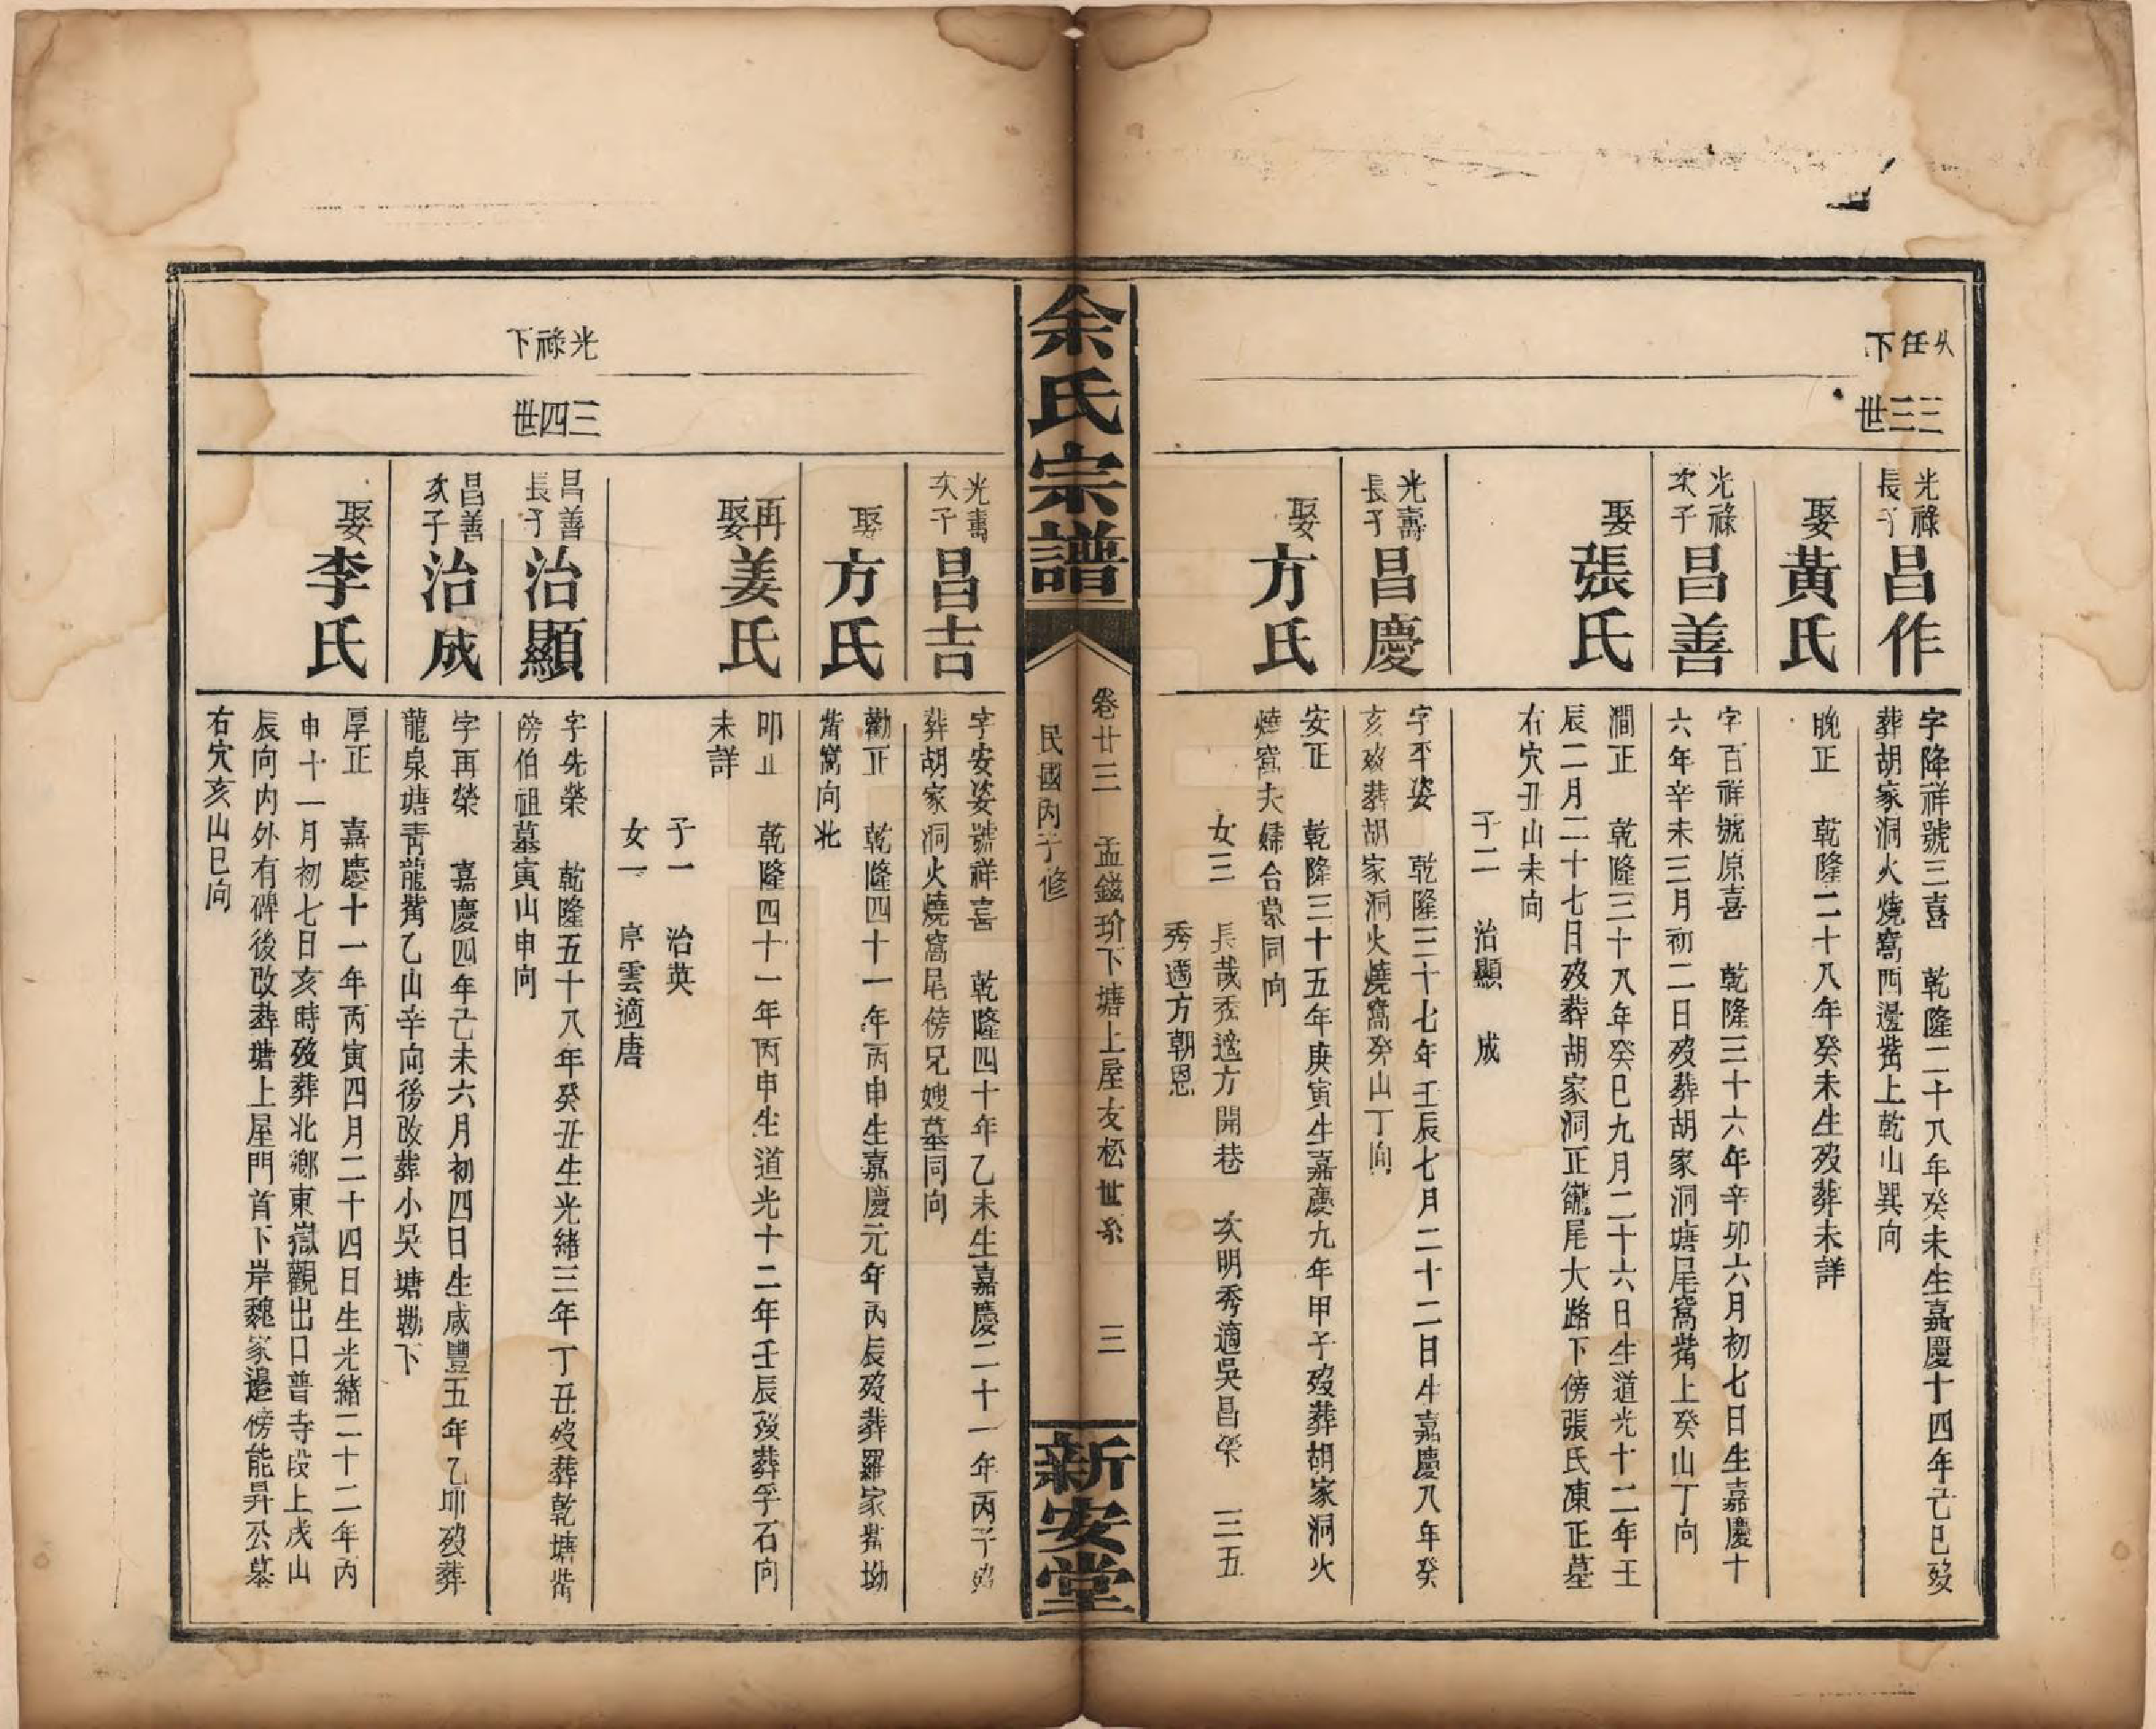 久任下
三三世
光祿
長子
昌作
字降祥號三喜　乾隆二十八年癸未生嘉慶十四年己巳歿
葬胡家洞火燒窩西邊嘴上乾山巽向
娶
黃氏
晚正　乾隆二十八年癸未生歿葬未詳
光祿
次子
昌善
字百祥號原喜　乾隆三十六年辛卯六月初七日生嘉慶十
六年辛未三月初二日歿葬胡家洞塘尾窩嘴上癸山丁向
娶
張氏
澗正　乾隆三十八年癸巳九月二十六日生道光十二年壬
辰二月二十七日歿葬胡家洞正龍尾大路下傍張氏凍正墓
右穴丑山未向
子二　治顯　成
光壽
長子
昌慶
字平姿　乾隆三十七年壬辰七月二十二日生嘉慶八年癸
亥歿葬胡家洞火燒窩癸山丁向
娶
方氏
安正　乾隆三十五年庚寅生嘉慶九年甲子歿葬胡家洞火
燒窩夫婦合墓同向
女三　長莪秀適方開巷　次明秀適吳昌榮　三五
秀適方朝恩
余氏宗譜
卷廿三　孟鎡玠下塘上屋友松世系　三
民國丙子修
新安堂
光祿下
三四世
光壽
次子
昌吉
字安姿號祥喜　乾隆四十年乙未生嘉慶二十一年丙子歿
葬胡家洞火燒窩尾傍兄嫂墓同向
娶
方氏
勸正　乾隆四十一年丙申生嘉慶元年丙辰歿葬羅家嘴坳
嘴窩向北
再
娶
姜氏
叩正　乾隆四十一年丙申生道光十二年壬辰歿葬孚石向
未詳
子一　治英
女一　序雲適唐
昌善
長子
治顯
字先榮　乾隆五十八年癸丑生光緒三年丁丑歿葬乾塘嘴
傍伯祖墓寅山申向
昌善
次子
治成
字再榮　嘉慶四年己未六月初四日生咸豐五年乙卯歿葬
龍泉塘青龍嘴乙山辛向後改葬小吳塘坳下
娶
李氏
厚正　嘉慶十一年丙寅四月二十四日生光緒二十二年丙
申十一月初七日亥時歿葬北鄉東嶽觀出口普寺段上戌山
辰向內外有碑後改葬塘上屋門首下岸魏家邊傍能昇公墓
右穴亥山巳向